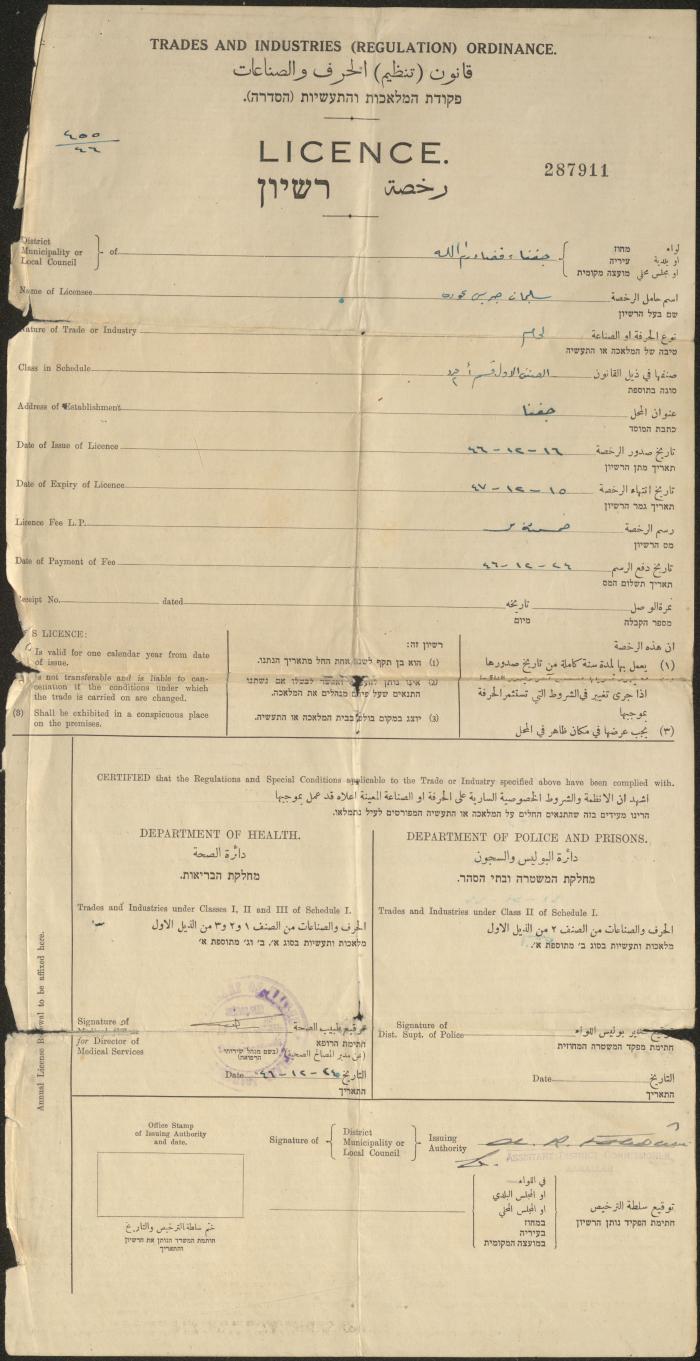 TRADES AND INDUSTRIES (REGULATION) ORDINANCE.
قانون (تنظيم) الحرف والصناعات
פקודת המלאכות והתעשיות (הסדרה).
٤٥٥
٤٦
LICENCE.
287911
רשיון رخصة
District
Municipality or
Local Council
of
جفنا، قضاء رام الله
لواء מחוז
او بلدية עיריה
او مجلس محلي מועצה מקומית
Name of Licensee
سليمان جريس
اسم حامل الرخصة
שם בעל הרשיון
Nature of Trade or Industry
لحام
نوع الحرفة او الصناعة
טיבה של המלאכה או התעשיה
Class in Schedule
الصنف الاول قسم أ
صنفها في ذيل القانون
סוגה בתוספת
Address of Establishment
جفنا
عنوان المحل
כתבת המוסד
Date of Issue of Licence
١٦-١٢-٤٦
تاريخ صدور الرخصة
תאריך מתן הרשיון
Date of Expiry of Licence
١٥-١٢-٤٧
تاريخ انتهاء الرخصة
תאריך גמר הרשיון
Licence Fee L.P.
رسم الرخصة
מס הרשיון
Date of Payment of Fee
٢٦-١٢-٤٦
تاريخ دفع الرسم
תאריך תשלום המס
Receipt No. dated
تاريخه
מיום
نمرة الوصل
מספר הקבלה
LICENCE:
Is valid for one calendar year from date
of issue.
is not transferable and is liable to can-
cellation if the conditions under which
the trade is carried on are changed.
(3) Shall be exhibited in a conspicuous place
on the premises.
רשיון זה:
(1) הוא בן תקף לשנה אחת החל מתאריך הנתנו.
(2) אינו ניתן לבטלו אם נשתנו
התנאים שעל פיהם מנהלים את המלאכה.
(3) יוצג במקום בולט בבית המלאכה או התעשיה.
ان هذه الرخصة
(١) يعمل بها لمدة سنة كاملة من تاريخ صدورها
اذا جرى تغيير في الشروط التي تستثمر الحرفة
بموجبها
(٣) يجب عرضها في مكان ظاهر في المحل
CERTIFIED that the Regulations and Special Conditions applicable to the Trade or Industry specified above have been complied with.
اشهد ان الانظمة والشروط الخصوصية السارية على الحرفة او الصناعة المعينة اعلاه قد عمل بموجبها
הרינו מעידים בזה שהתנאים החלים על המלאכה או התעשיה המפורטים לעיל נתמלאו.
DEPARTMENT OF HEALTH.
دائرة الصحة
מחלקת הבריאות.
Trades and Industries under Classes I, II and III of Schedule I.
الحرف والصناعات من الصنف ١ و ٢ و ٣ من الذيل الاول
מלאכות ותעשיות בסוג א׳, ב׳ וג׳ מתוספת א׳
Signature of
for Director of
Medical Services
توقيع طبيب الصحة
חתימת הרופא
(عن مدير المصالح الصحية)
(בשם מנהל שירותי
הרפואה)
Date ٢٤-١٢-٤٦ التاريخ
התאריך
DEPARTMENT OF POLICE AND PRISONS.
دائرة البوليس والسجون
מחלקת המשטרה ובתי הסהר.
Trades and Industries under Class II of Schedule I.
الحرف والصناعات من الصنف ٢ من الذيل الاول
מלאכות ותעשיות בסוג ב׳ מתוספת א׳.
Signature of
Dist. Supt. of Police
توقيع مدير بوليس اللواء
חתימת מפקד המשטרה המחוזית
Date التاريخ
התאריך
Annual Licence Renewal to be affixed here.
Office Stamp
of Issuing Authority
and date.
ختم سلطة الترخيص والتاريخ
חותמת המשרד הנותן את הרשיון
והתאריך
Signature of
District
Municipality or
Local Council
Issuing
Authority
ASSISTANT DISTRICT COMMISSIONER
في اللواء
او المجلس البلدي
او المجلس المحلي
במחוז
בעיריה
במועצה המקומית
توقيع سلطة الترخيص
חתימת הפקיד נותן הרשיון